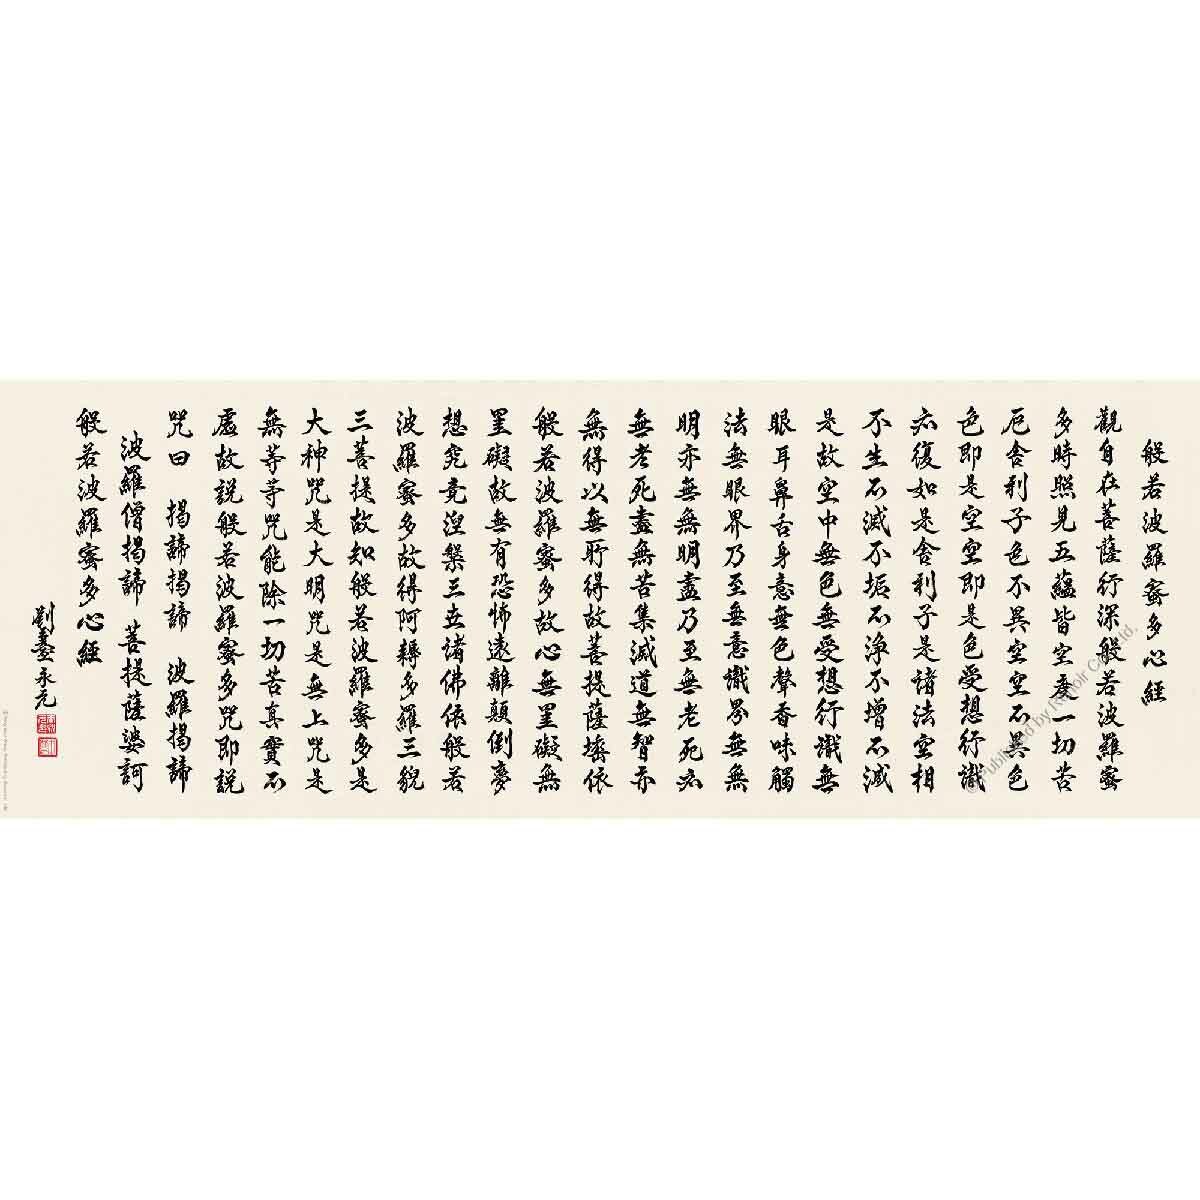 般若波羅蜜多心經
觀自在菩薩行深般若波羅蜜
多時照見五蘊皆空度一切苦
厄舍利子色不異空空不異色
色即是空空即是色受想行識
亦復如是舍利子是諸法空相
不生不滅不垢不淨不增不減
是故空中無色無受想行識無
眼耳鼻舌身意無色聲香味觸
法無眼界乃至無意識界無無
明亦無無明盡乃至無老死亦
無老死盡無苦集滅道無智亦
無得以無所得故菩提薩埵依
般若波羅蜜多故心無罣礙無
罣礙故無有恐怖遠離顛倒夢
想究竟涅槃三世諸佛依般若
波羅蜜多故得阿耨多羅三藐
三菩提故知般若波羅蜜多是
大神咒是大明咒是無上咒是
無等等咒能除一切苦真實不
虛故說般若波羅蜜多咒即說
咒曰 揭諦揭諦 波羅揭諦
波羅僧揭諦 菩提薩婆訶
般若波羅蜜多心經
劉墉 永元
© Published by Renoir Co. Ltd.